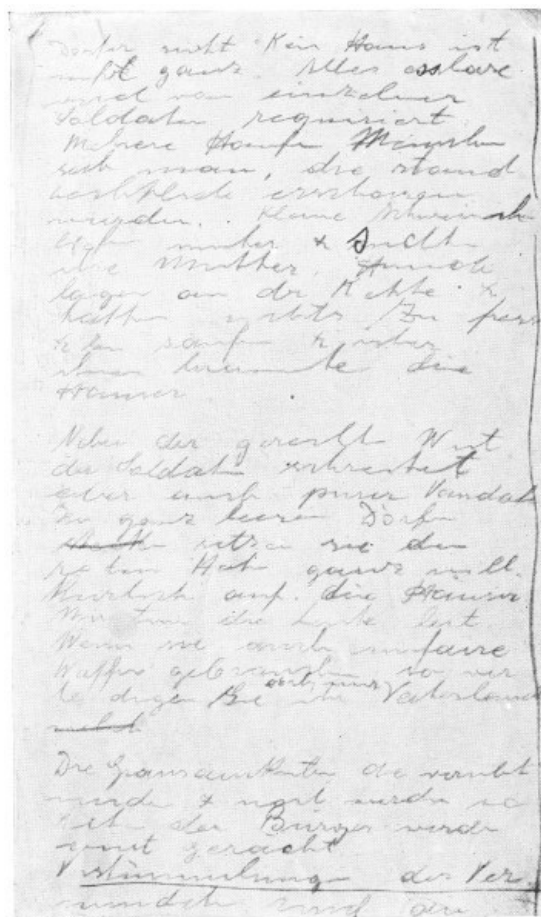 Dörfer nicht Kein Haus ist
nicht ganz. Alles essbare
wird von einzelnen
Soldaten requiriert.
Mehrere Haufen Menschen
sah man, die stand
rechtlich erschossen
wurden. Kleine Schweinch
liefen umher & suchten
ihre Mutter. Hunde
lagen an der Kette &
hatten nichts zu fress
& zu saufen & über
ihnen brannte die
Häuser
Neben der gerechten Wut
der Soldaten
aber auch purer Vandal
In ganz leeren Dörfern
setzen sie den
roten Hahn ganz will
kürlich auf die Häuser
Mir tun die Leute leid
Wenn sie auch unfaire
Waffen gebrauchen so ver
teidigen Sie doch nur ihr Vaterland
Die Grausamkeiten die verübt
wurden & noch werden
der Bürger werden
gerächt
Verstümmelung der Ver
wundeten sind an